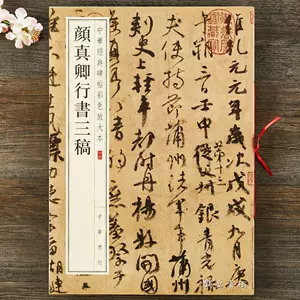 維乾元元年歲次戊戌九月庚
午朔三日壬申第十三從父叔銀青光祿
夫使持節蒲州諸軍事蒲州
刺史上輕車都尉丹楊縣開國
中華經典碑帖彩色放大本
顏真卿行書三稿
中華書局